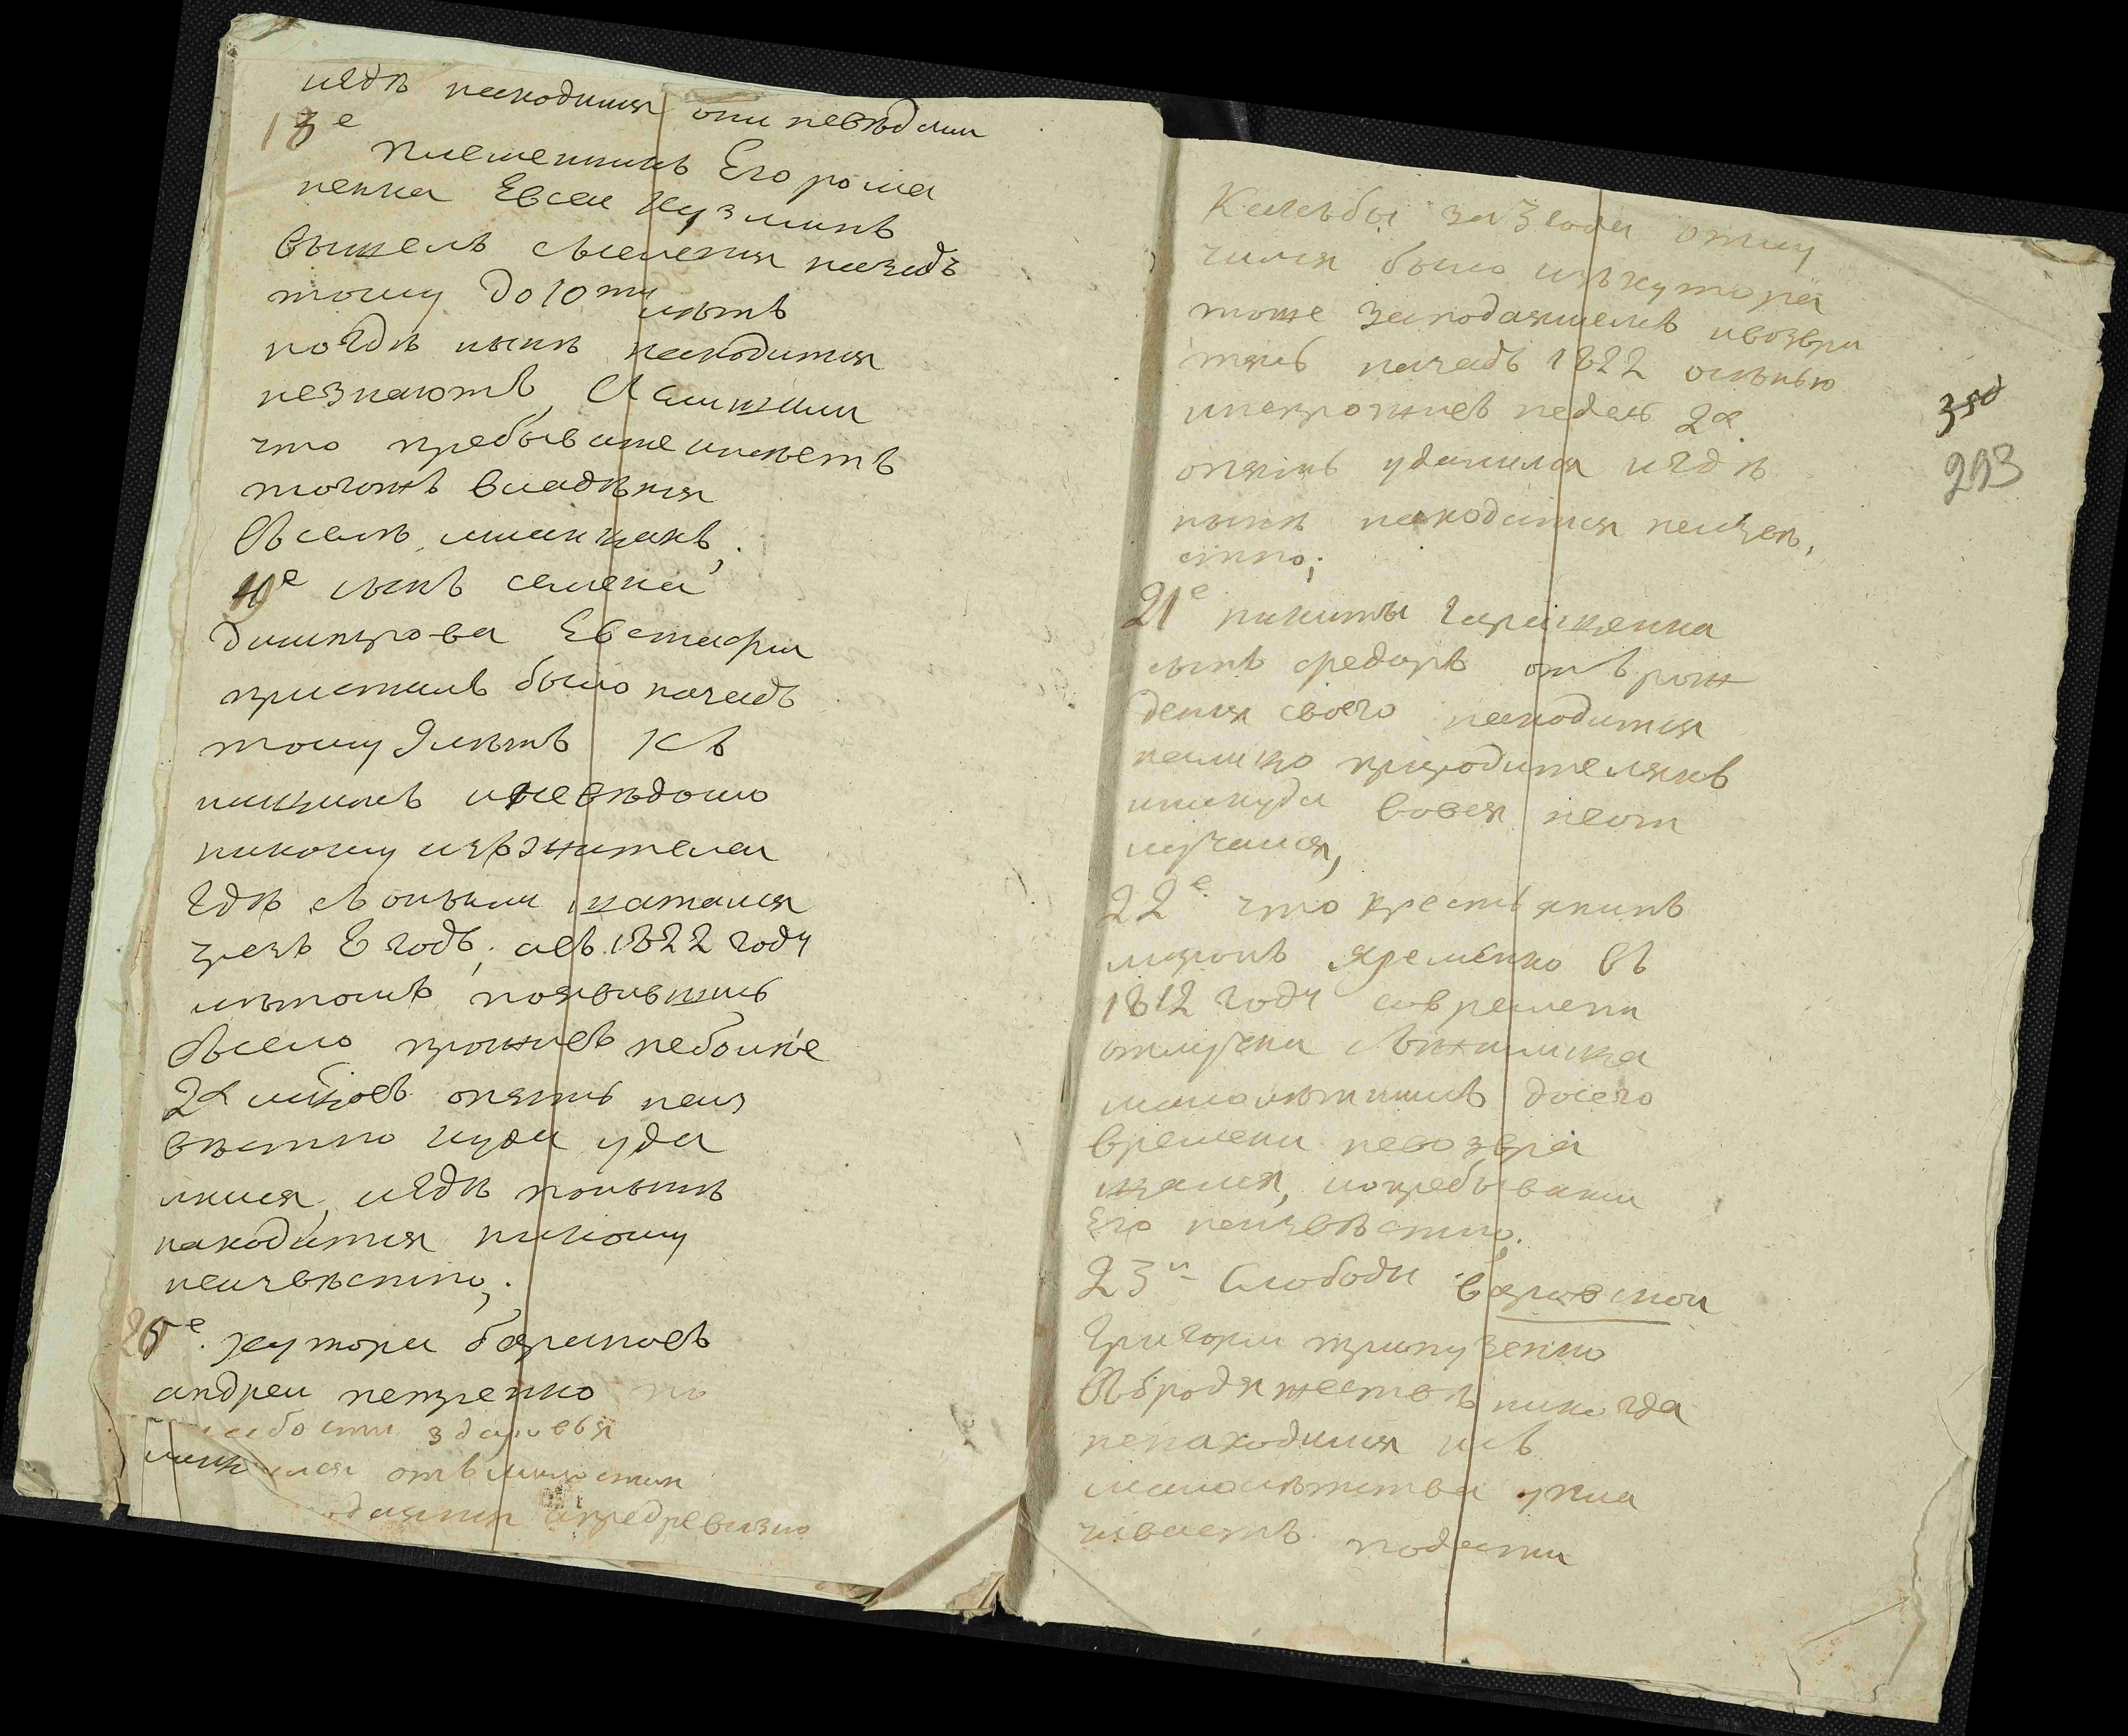 игдѣ находился они невѣдали
18е племенникъ Его рома
ненка Евсеи Кузминъ
вышелъ сѣмения назадъ
тому до 10ти лѣтъ
но гдѣ нынѣ находится
незнаютъ, А слышали
что пребывание имѣетъ
тогожъ владѣния
въ селѣ
19е сынъ семена
димитрова Евстафи
присталъ было назадъ
тому 9 лѣтъ къ
нищимъ иневѣдомо
никому изъ жителеи
гдѣ съ оными шатался
чрезъ 6 годъ, а въ 1822 году
лѣтомъ появившись
въ село проживъ неболѣе
2х мцовъ опять неиз
вѣстно куда уда
лился, игдѣ понынѣ
находится никому
неизвѣстно;
20е хутора бариновъ
андреи петренко по
слабости здоровья
отъ милостини
апредревизию
Кажъбы за 3 года отлу
чился было изъ хутора
тоже заподаяниемъ ивозвра
тясь назадъ 1822 осѣнью
ипопроживъ недель 2е
опять удалился игдѣ
нынѣ находится неизвѣ
стно;
21е никиты Гаращенка
сынъ федоръ отъ рож
дения своего находится
налицо природителяхъ
иникуда вовся неот
лучался,
22е что крестьянинъ
миронъ яременко въ
1812 году современи
отлучки съ жилища
малолѣтнимъ досего
времени невозвра
щался, иопребывании
Его неизвѣстно.
23и Слободи
Григори трипузенко
въ бродяжествѣ никогда
ненаходился исъ
малолѣтства упла
чиваетъ подати
350
293